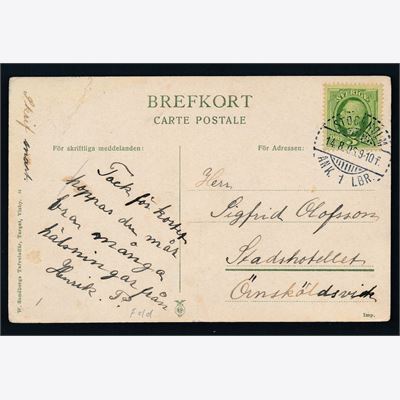 BREFKORT
CARTE POSTALE
För skriftliga meddelanden:
För Adressen:
Skrif snart
Tack för kortet
hoppas du mår
bra många
hälsningar från
Henrik. P.
Feld
Herr
Sigfrid Olofsson
Stadshotellet
Örnsköldsvik
SVERIGE
STOCKHOLM
14.8. 9-10 F.
ANK. 1 LBR.
W. Sandbergs Tafvelaffär, Torget, Visby.
Imp.